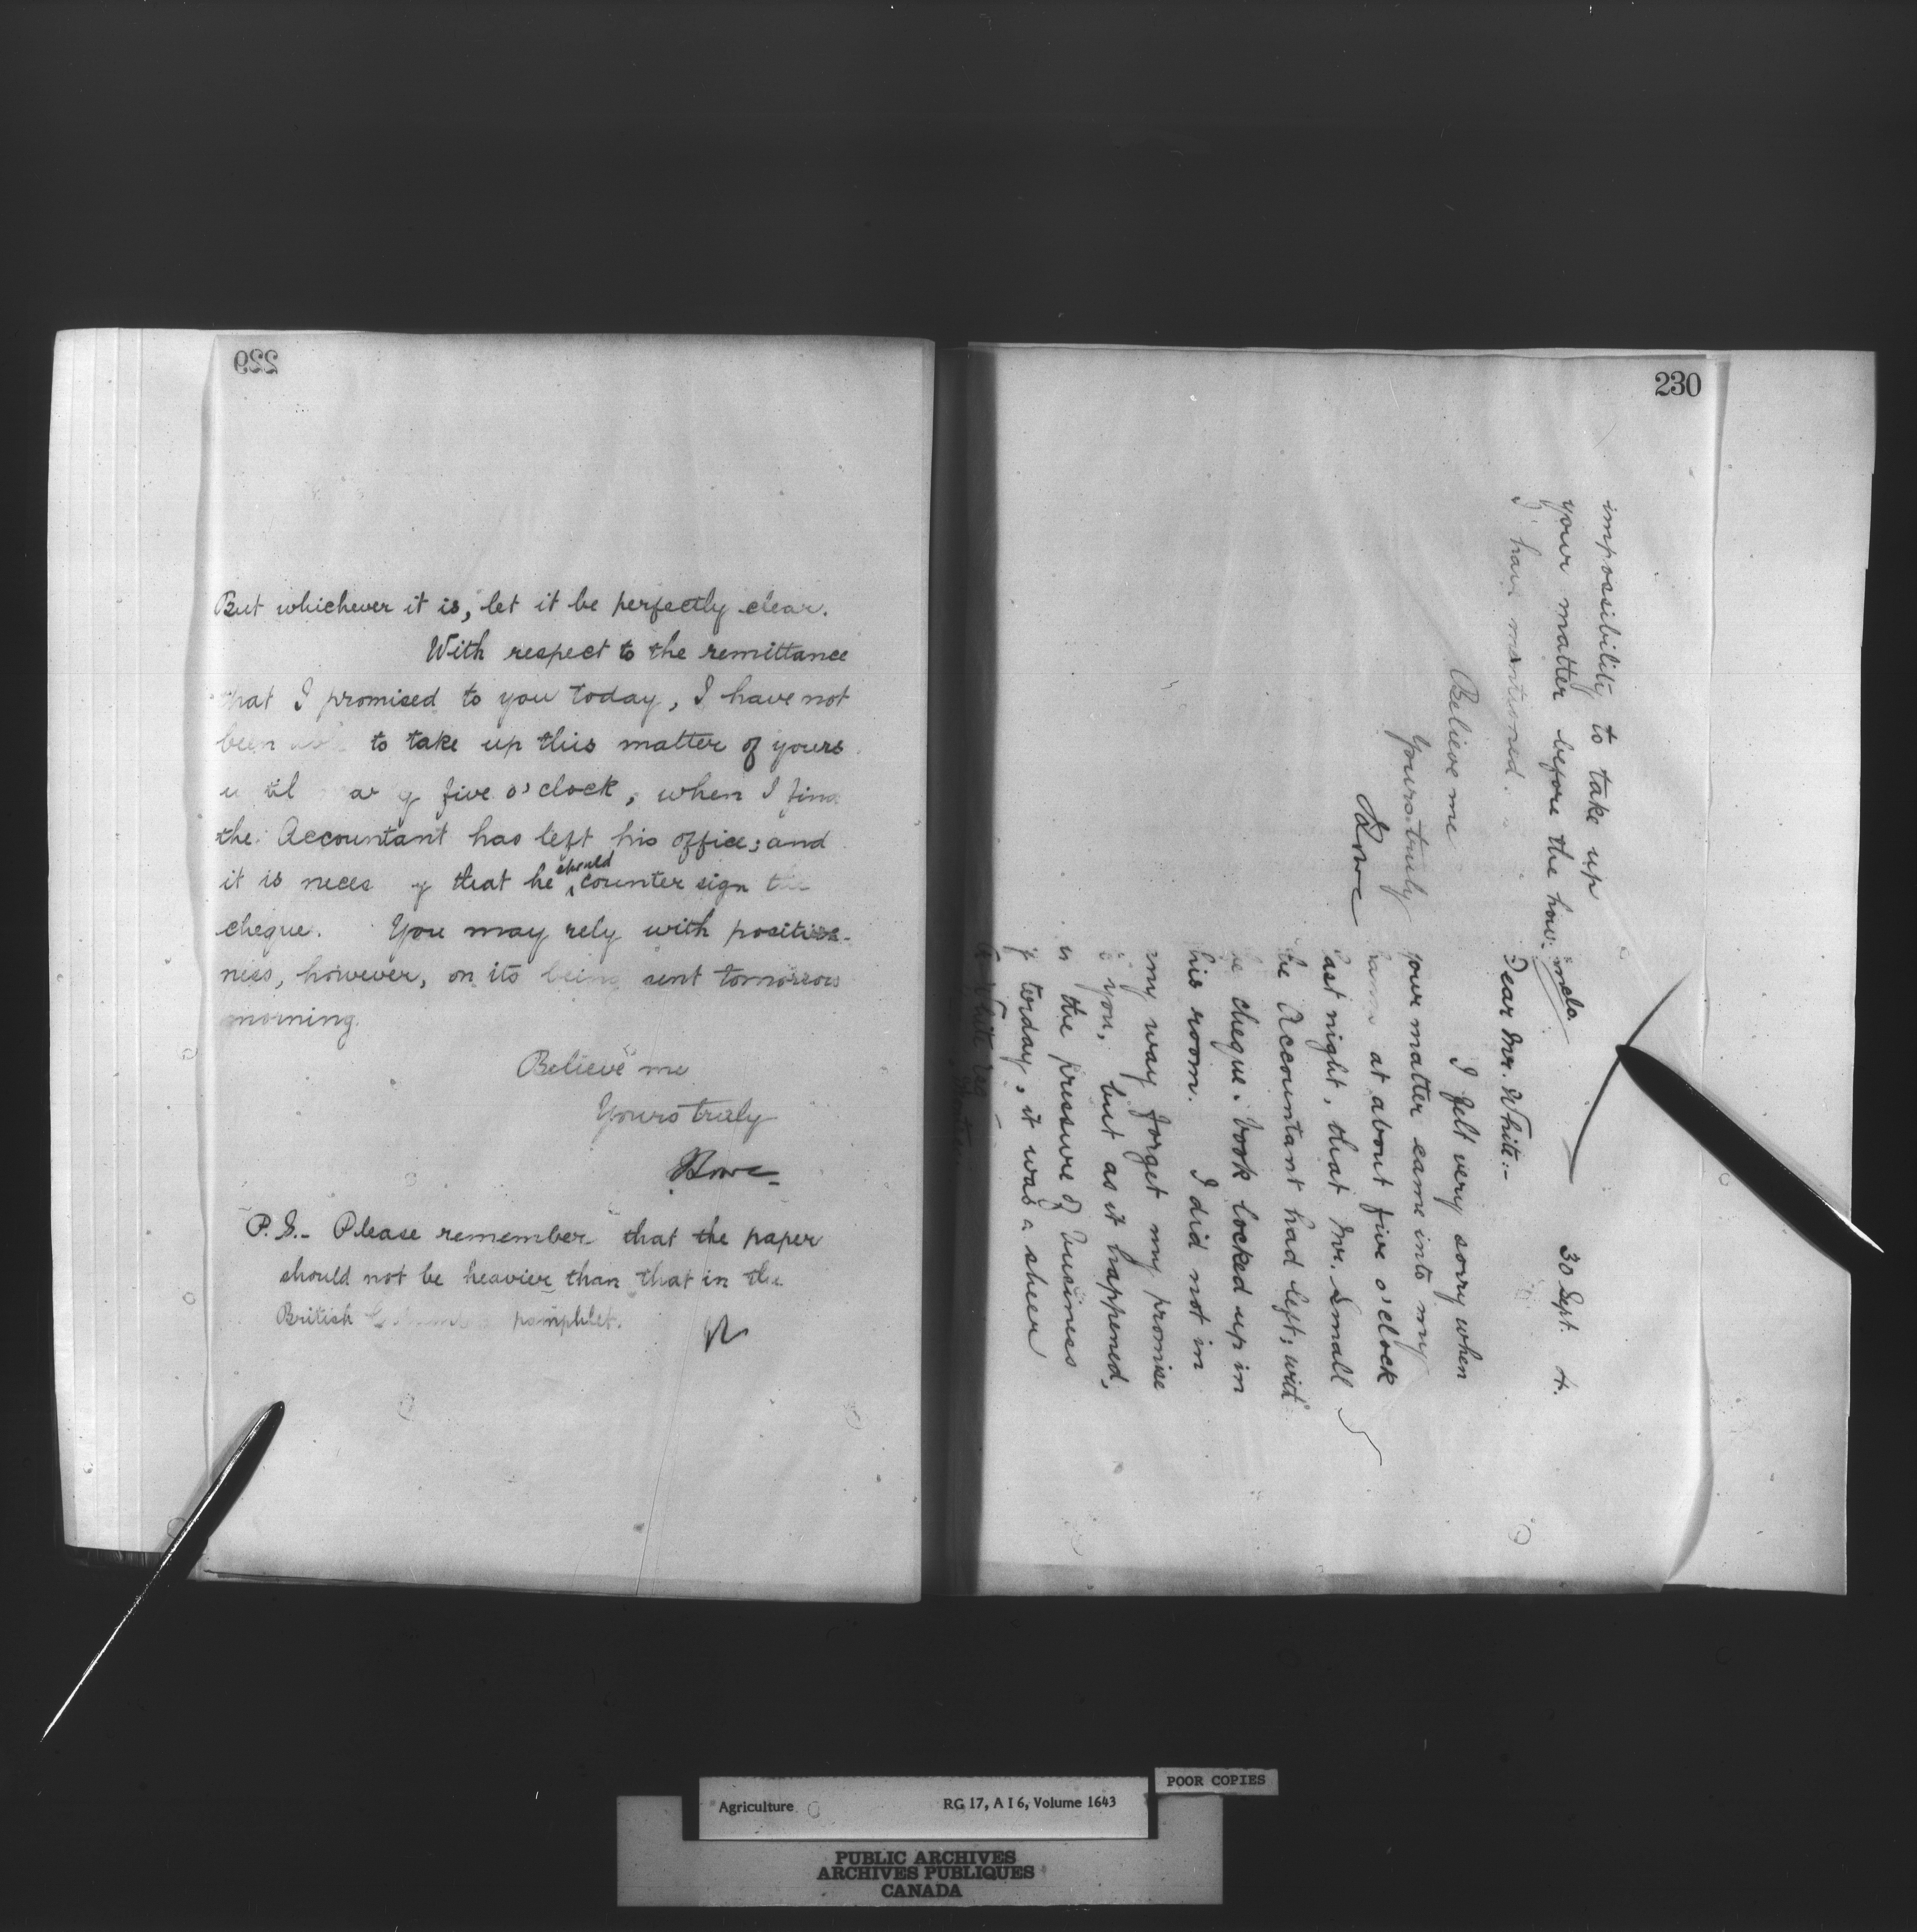 229
But whichever it is, let it be perfectly clear.
With respect to the remittance
that I promised to you today, I have not
been able to take up this matter of yours
until five o'clock, when I find
the Accountant has left his office; and
it is that he should counter sign the
cheque. You may rely with positive-
ness, however, on its being sent tomorrow
morning.
Believe me
Yours truly
Lowe
P.S. - Please remember that the paper
should not be heavier than that in the
British pamphlet.
230
30 Sept. 4.
Dear Mr. White:-
I felt very sorry when
your matter came into my
at about five o'clock
last night, that Mr. Small
the Accountant had left; with
the cheque-book locked up in
his room. I did not in
my way forget my promise
to you, but as it happened,
in the pressure of business
, it was a sheer
impossibility to take up
your matter before the hour
I have mentioned.
Believe me
Yours truly
Lowe
inclo.
POOR COPIES
Agriculture RG 17, A I 6, Volume 1643
PUBLIC ARCHIVES
ARCHIVES PUBLIQUES
CANADA